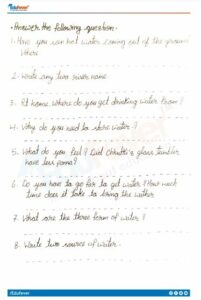 Edufever
Answer the following question.
1. Have you seen hot water coming out of the ground
Where
2. Write any two river name
3. At home, where do you get drinking water from?
4. Why do you need to store water?
5. What do you feel? Did Chhotti's glass tumbler
have less panna?
6. Do you have to go far to get water? How much
time does it take to bring the water
7. What are the three form of water?
8. Write two source of water.
/Edufever